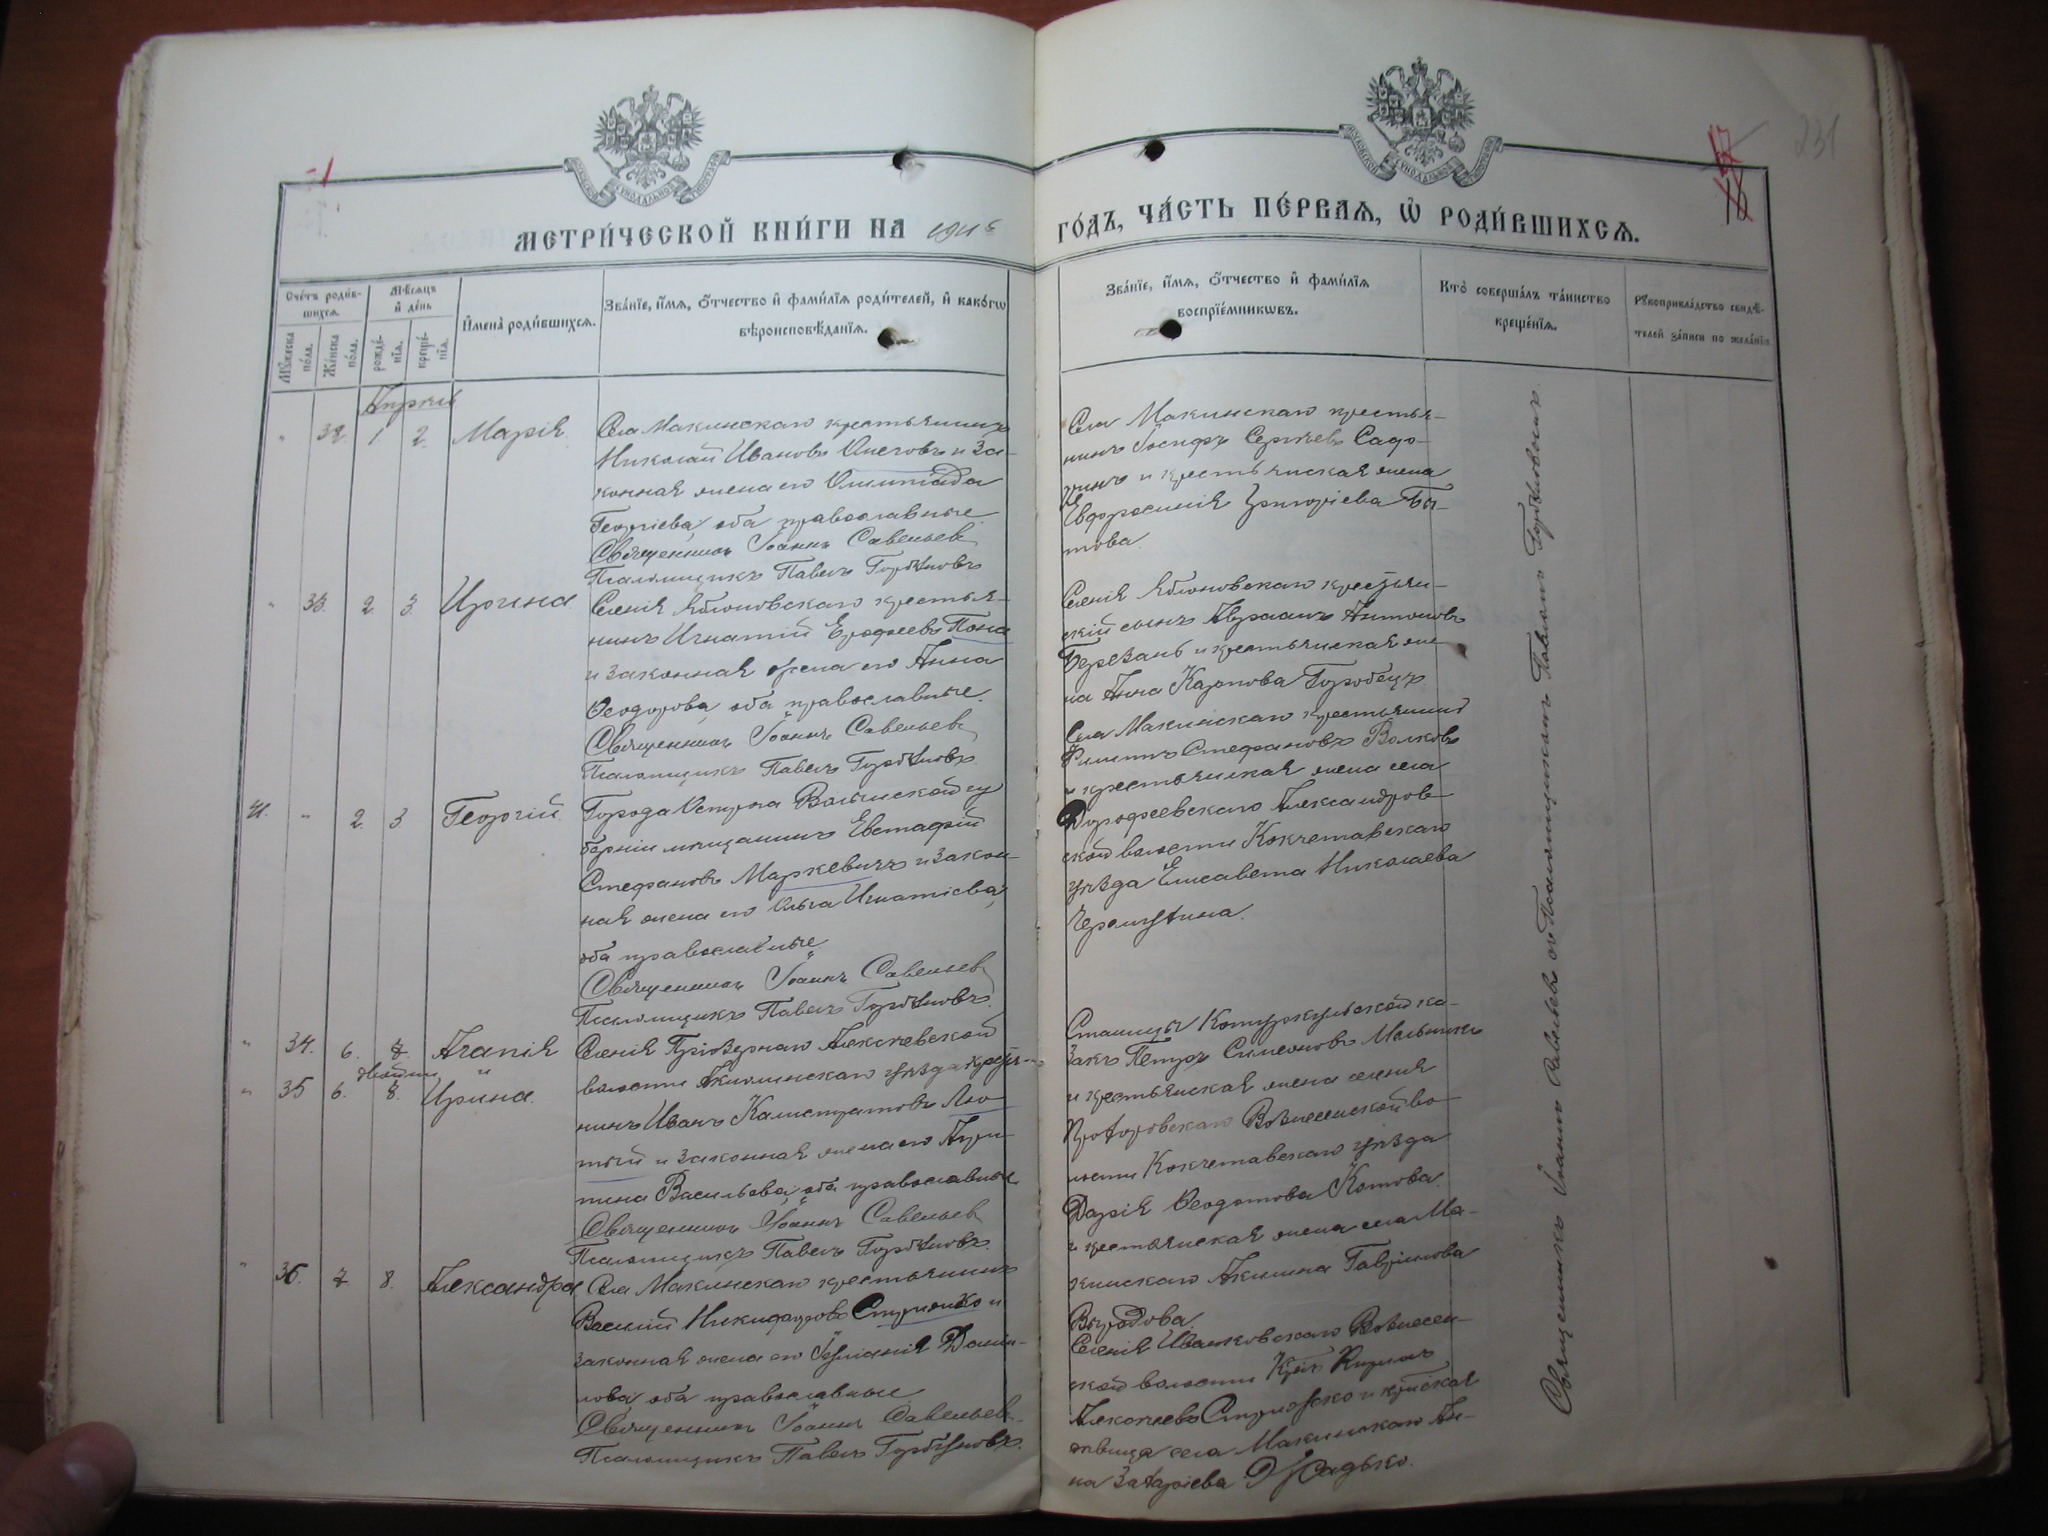 МЕТРИ́ЧЕСКОЙ КНИ́ГИ НА 1911й
ГО́ДЪ, ЧА́СТЬ ПЕ́РВАѦ, Ѡ҆ РОДИ́ВШИХСѦ.
231
Сче́тъ роди́в-
шихсѧ.
Мꙋ́жеска по́ла.
Же́нска по́ла.
Мѣ́сѧцъ
и҆ де́нь
рожде́-
нїѧ.
креще́-
нїѧ.
И҆мена̀ роди́вшихсѧ.
Зва́нїе, и҆́мѧ, ѻ҆́тчество и҆ фами́лїѧ роди́телей, и҆ како́гѡ
вѣроисповѣ́данїѧ.
Зва́нїе, и҆́мѧ, ѻ҆́тчество и҆ фами́лїѧ
воспрїе́мникѡвъ.
Кто̀ соверша́лъ та́инство
креще́нїѧ.
Рꙋкоприкла́дство свидѣ́-
телей за́писи по жела́нїю
Апрѣль
" 32. 1. 2. Марія.
Села Макинскаго крестьянинъ
Николай Ивановъ и за-
конная жена его Олимпіада
Георгіева, оба православные.
Священникъ Іоаннъ Савельев
Псаломщикъ Павелъ Горбуновъ
Села Макинскаго крестья-
нинъ Іосифъ Сергѣевъ
и крестьянская жена
Евфросинія Григоріева Бы-
това.
" 33. 2. 3. Ирина
Селенія Яблоновскаго крестья-
нинъ Игнатій Ерофеевъ
и законная жена его Анна
Ѳеодорова, оба православные.
Священникъ Іоаннъ Савельев
Псаломщикъ Павелъ Горбуновъ
Селенія Яблоновскаго крестьян-
скій сынъ Авраамъ Антоновъ
Березань и крестьянская же-
на Анна Карпова Горобецъ.
41. " 2. 3. Георгій.
Города Острога Волынской гу
берніи мѣщанинъ Евстафій
Стефановъ Маркевичъ и закон-
ная жена его Ольга Игнатіева,
оба православные.
Священникъ Іоаннъ Савельев
Псаломщикъ Павелъ Горбуновъ.
Села Макинскаго крестьянинъ
Филиппъ Стефановъ Волковъ
и крестьянская жена села
Дорофеевскаго Александров-
ской волости Кокчетавскаго
уѣзда Елисавета Николаева
" 34. 6. 8. Агапія
двойни "
" 35 6. 8. Ирина.
Селенія Пріозернаго Алексѣевской
волости Акмолинскаго уѣзда крест-
нинъ Иванъ Калистратовъ Лю-
тый и законная жена его Агрип-
пина Васильева, оба православные
Священникъ Іоаннъ Савельев
Псаломщикъ Павелъ Горбуновъ.
Станицы Котуркульской ка-
закъ Петръ Симеоновъ
и крестьянская жена селенія
Вознесенской во-
лости Кокчетавскаго уѣзда
Дарія Ѳеодотова Котова.
и крестьянская жена села Ма-
кинскаго Акилина Гаврилова
" 36. 7 8. Александра
Села Макинскаго крестьянинъ
Василій Никифоровъ и
законная жена его Іуліанія Дани-
лова, оба православные
Священникъ Іоаннъ Савельев
Псаломщикъ Павелъ Горбуновъ.
Селенія Ивановскаго Вознесен-
ской волости
Алексѣевъ и
дѣвица села Макинскаго Ан-
на Захаріева
Священникъ Іоаннъ Савельевъ съ Псаломщикомъ Павломъ Горбуновымъ